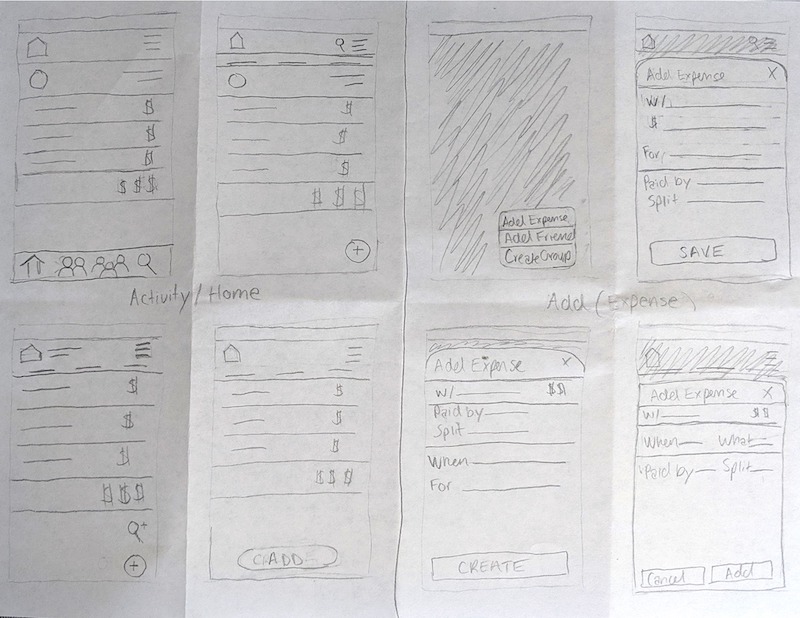 $
$
$
$ $ $
$
$
$
$ $ $
+
Add Expense
Add Friend
Create Group
Add Expense X
W/
$
For
Paid by
Split
SAVE
Activity / Home
Add (Expense)
$
$
$
$ $ $
+
+
$
$
$
$ $ $
ADD
Add Expense X
W/ $$
Paid by
Split
When
For
CREATE
Add Expense X
W/ $$
When What
Paid by Split
Cancel Add